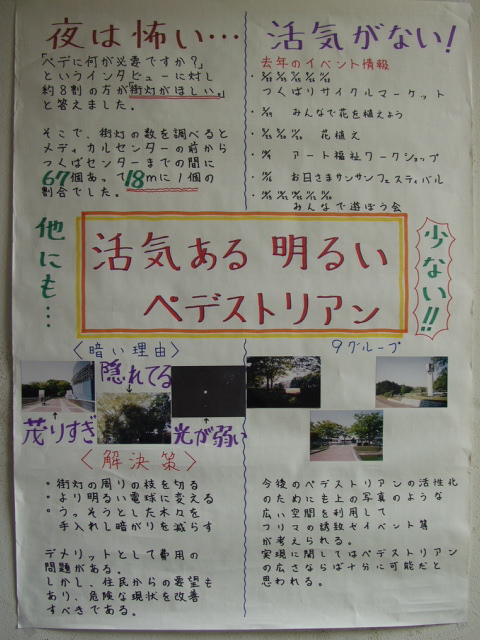 夜は怖い…
「ペデに何が必要ですか?」
というインタビューに対し
約8割の方が「街灯がほしい。」
と答えました。
そこで、街灯の数を調べると
メディカルセンターの前から
つくばセンターまでの間に
67個あって18mに1個の
割合でした。
活気がない!
去年のイベント情報
つくばリサイクルマーケット
みんなで花を植えよう
花植え
アート福祉ワークショップ
お日さまサンサンフェスティバル
みんなで遊ぼう会
他にも…
活気ある 明るい
ペデストリアン
少ない!!
〈暗い理由〉
隠れてる
茂りすぎ
光が弱い
〈解決策〉
・街灯の周りの枝を切る
・より明るい電球に変える
・うっそうとした木々を
手入れし暗がりを減らす
デメリットとして費用の
問題がある。
しかし、住民からの要望も
あり、危険な現状を改善
すべきである。
9グループ
今後のペデストリアンの活性化
のためにも上の写真のような
広い空間を利用して
フリマの誘致やイベント等
が考えられる。
実現に関してはペデストリアン
の広さならば十分に可能だと
思われる。